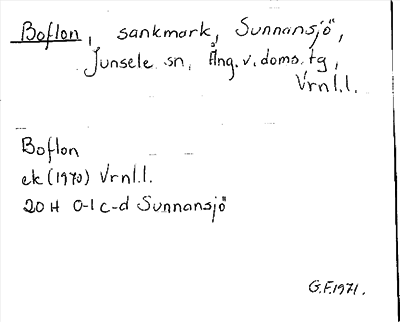 Boflon, sankmark, Sunnansjö,
Junsele sn, Ång. v. doms. tg,
Vrnl.l.
Boflon
ek (1970) Vrnl.l.
20 H 0-1 c-d Sunnansjö
G.F. 1971.